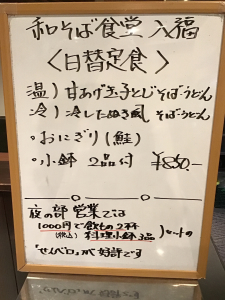 和そば食堂 八福
〈日替定食〉
温）甘あげ玉子とじそばうどん
冷）冷したぬき風 そばうどん
・おにぎり（鮭）
・小鉢 2品付 ¥850.-
夜の部 営業では
1000円で飲もの2杯
(税込) 料理小鉢3品 セットの
「せんベロ」が好評です